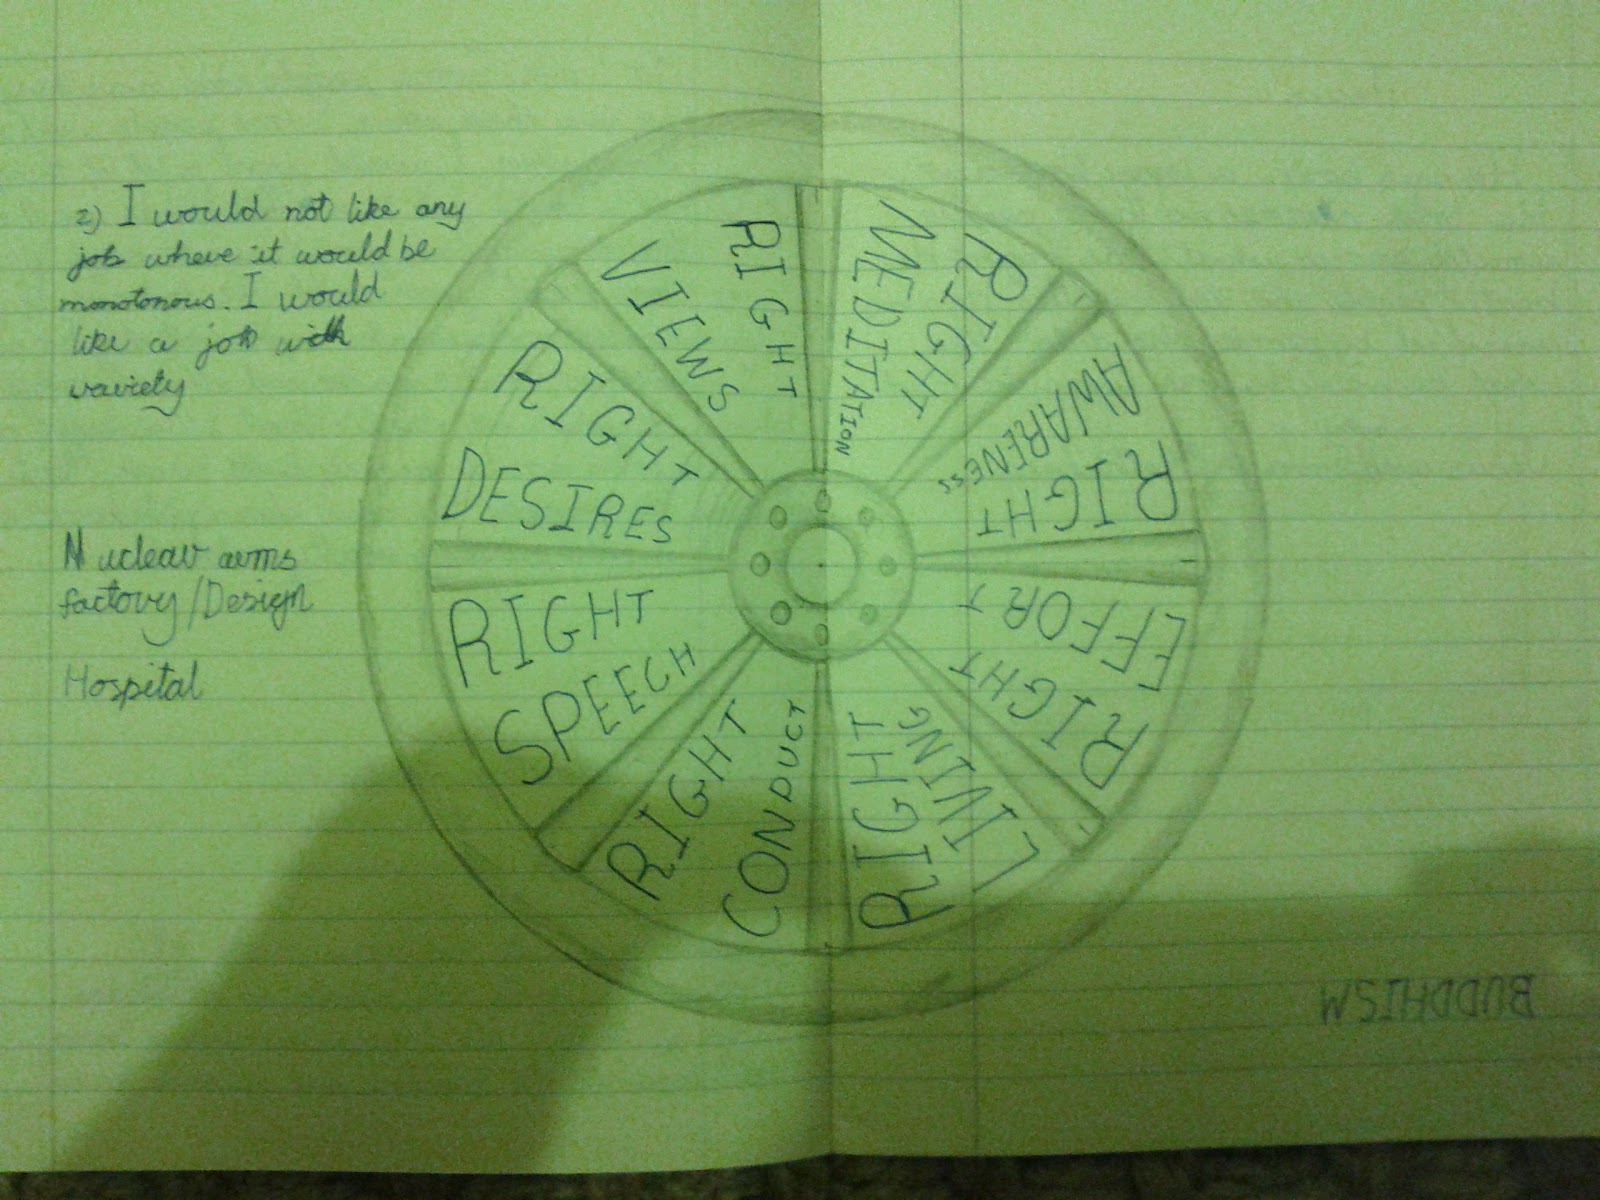 2) I would not like any
job where it would be
monotonous. I would
like a job with
variety
Nuclear arms
factory/Design
Hospital
RIGHT
VIEWS
RIGHT
DESIRES
RIGHT
SPEECH
RIGHT
CONDUCT
RIGHT
LIVING
RIGHT
EFFORT
RIGHT
AWARENESS
RIGHT
MEDITATION
BUDDHISM